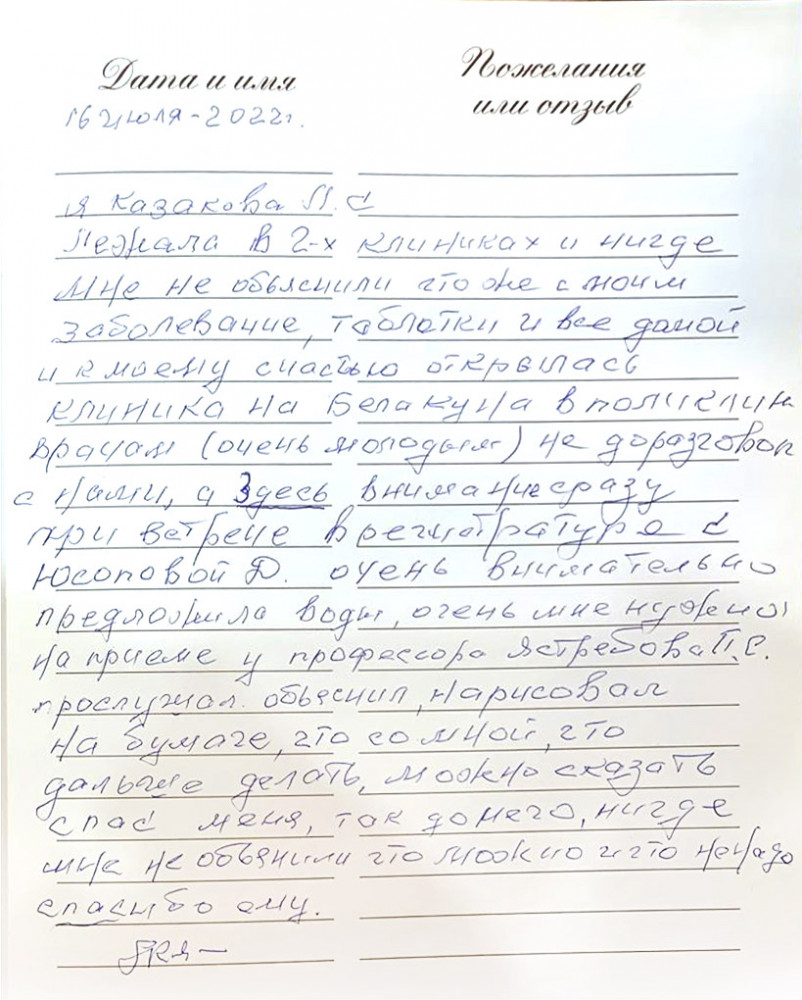 Дата и имя
Пожелания
или отзыв
16 июля - 2022г.
я Казакова Л.С
Лежала в 2-х клиниках и нигде
мне не обьяснили что же с моим
заболевание, таблотки и все домой
и к моему счастью открылась
клиника на Белакуна в поликлин
врачам (очень молодым) не доразговор
с нами, а здесь внимание сразу
при встрече в регистратуре с
Юсоповой Д. очень внимательно
предложила воды, очень мне нужной
на приеме у профессора Ястребова П.С.
прослушал. обьеснил, нарисовал
на бумаге, что со мной, что
дальше делать, можно сказать
спас меня, так до него, нигде
мне не обьянили что можно и что ненадо
спасыбо ему.